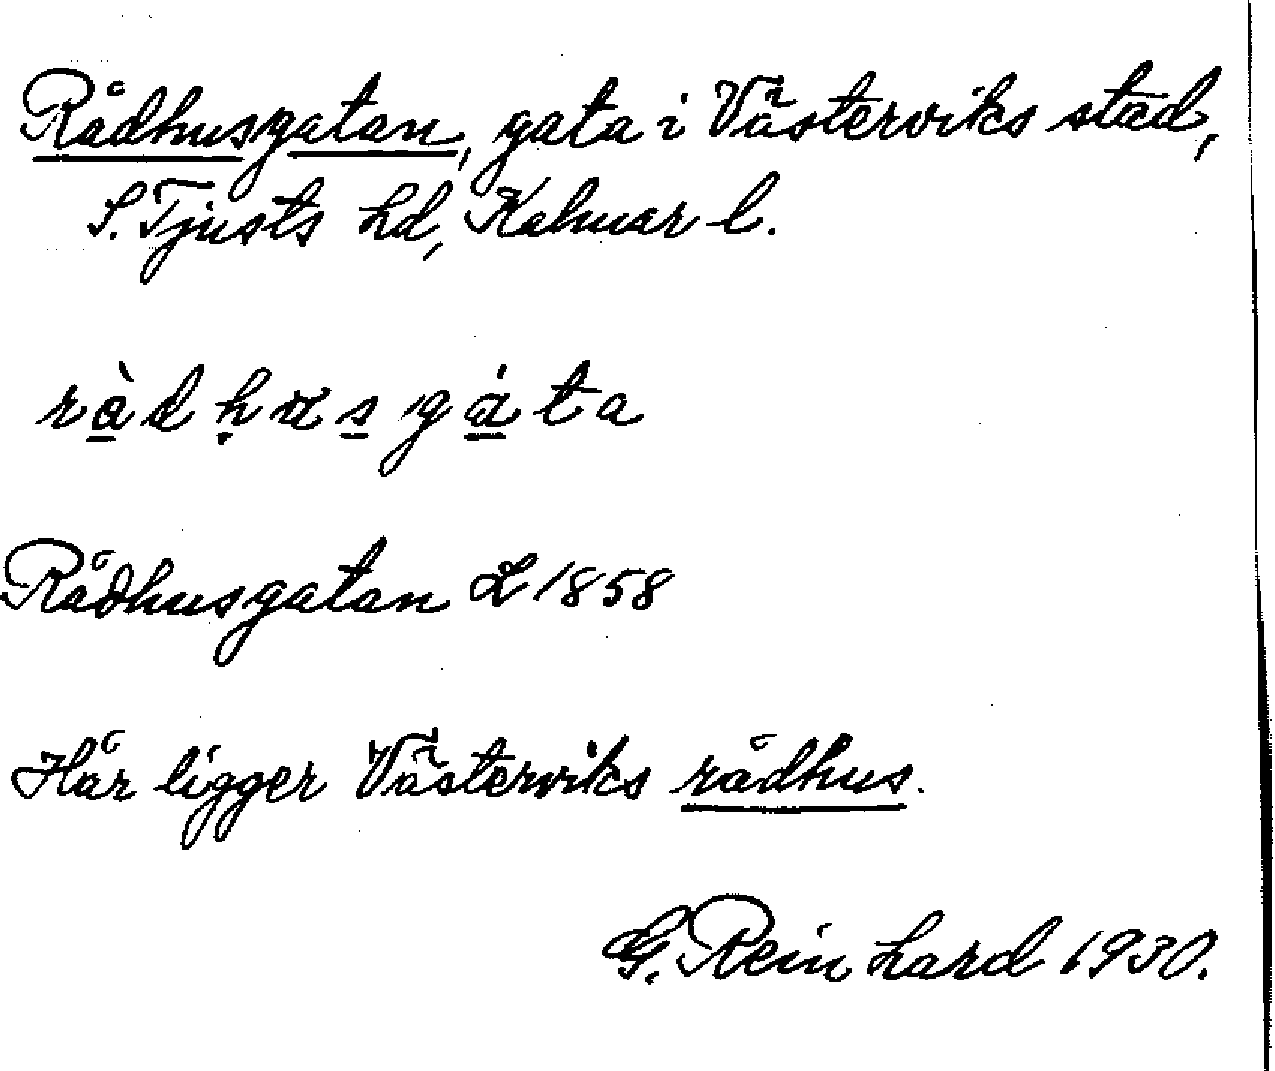 Rådhusgatan, gata i Västerviks stad,
S. Tjusts hd, Kalmar l.
rå̀dḥus̲gáta
Rådhusgatan L 1858
Här ligger Västerviks rådhus.
G. Reinhard 1930.